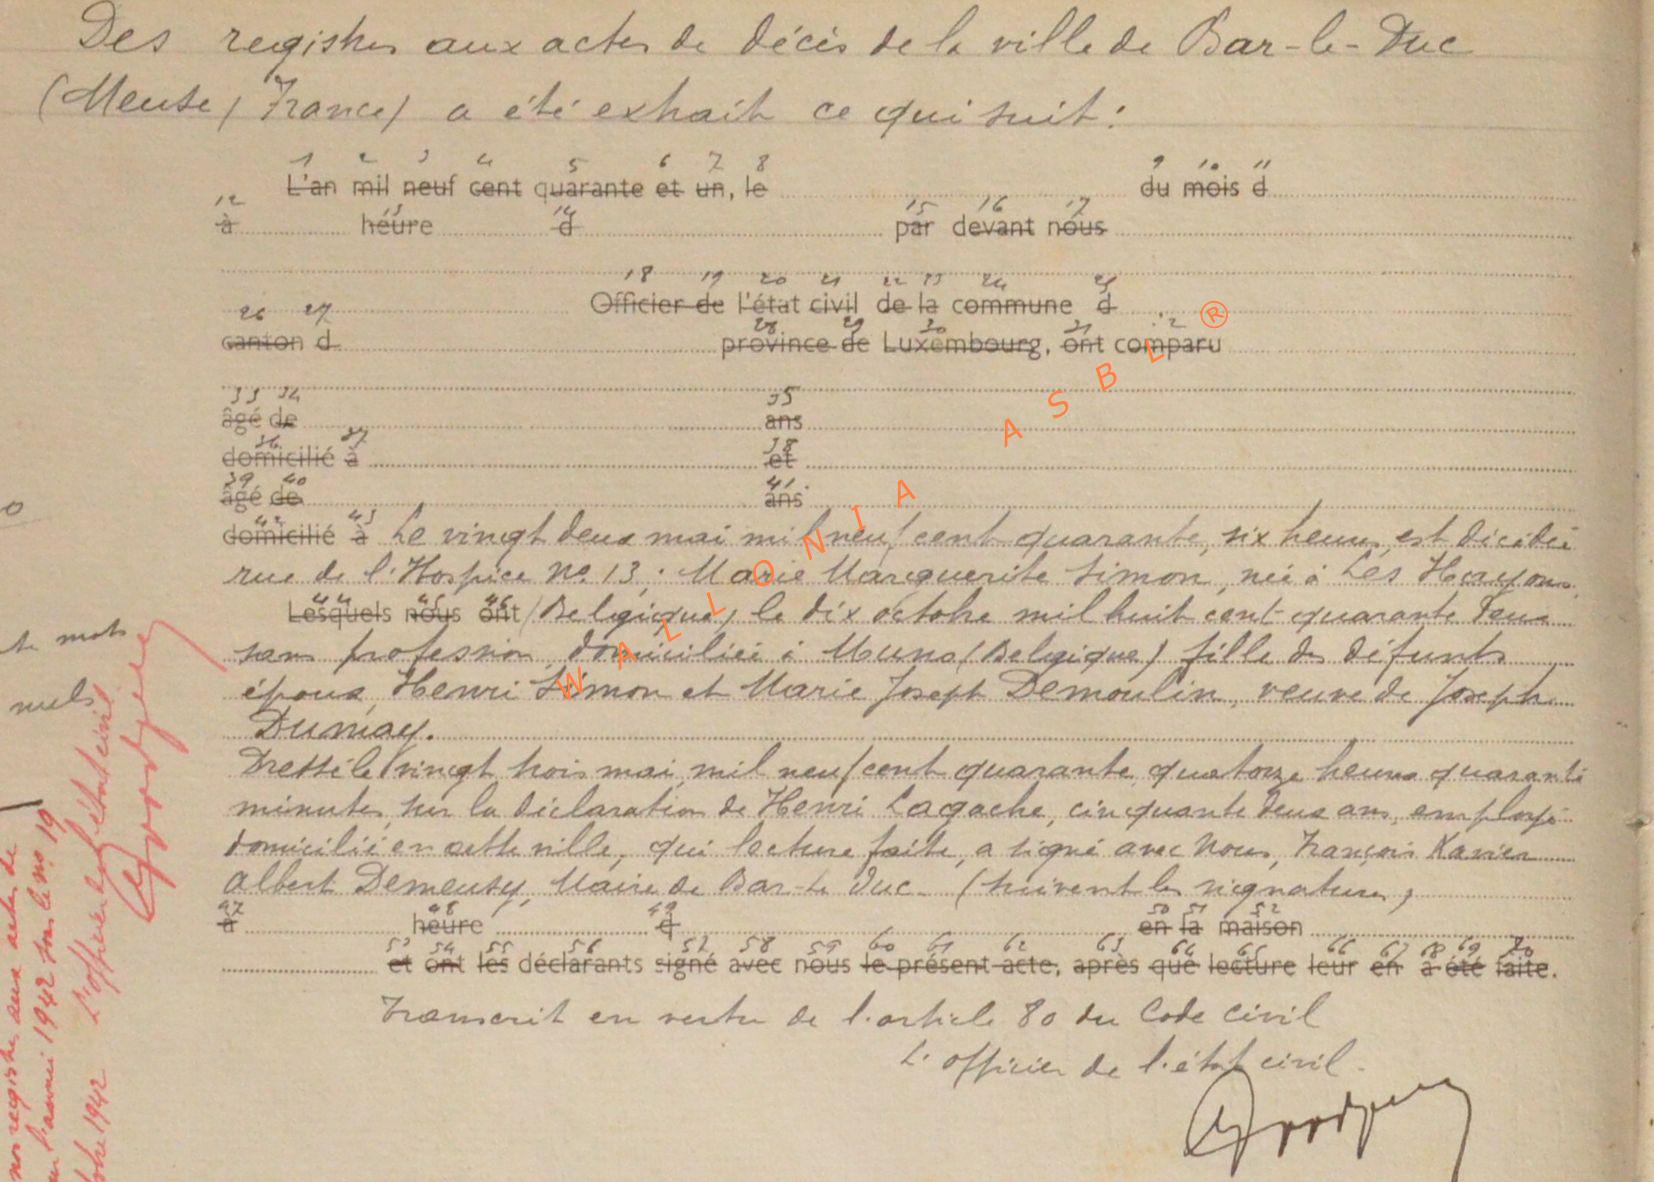 Des registres aux actes de décès de la ville de Bar-le-Duc
(Meuse, France) a été extrait ce qui suit :
1 2 3 4 5 6 7 8 9 10 11
L'an mil neuf cent quarante et un, le du mois d
12 13 14 15 16 17
à heure d par devant nous
18 19 20 21 22 23 24 25
Officier de l'état civil de la commune d
26 27 28 29 30 31
canton d province de Luxembourg, ont comparu
33 34 35
âgé de ans
36 37 38
domicilié à et
39 40 41
âgé de ans
42 43
domicilié à Le vingt deux mai mil neuf cent quarante, six heures, est décédée
rue de l'Hospice No. 13, Marie Marguerite Simon, née à Les Hayons
Lesquels nous ont (Belgique) le dix octobre mil huit cent quarante deux
sans profession, domiciliée à Muno (Belgique) fille des défunts
époux, Henri Simon et Marie Joseph Demoulin, veuve de Joseph
Dumay.
Dressé le vingt trois mai, mil neuf cent quarante, quatorze heures quarante
minutes, sur la déclaration de Henri Lagache, cinquante deux ans, employé
domicilié en cette ville, qui lecture faite, a signé avec Nous, François Xavier
Albert Demeusy, Maire de Bar-le Duc. (suivent les signatures)
47 48 49 50 51 52
à heure d en la maison
53 54 55 56 57 58 59 60 61 62 63 64 65 66 67 68 69 70
et ont les déclarants signé avec nous le présent acte, après que lecture leur en a été faite.
Transcrit en vertu de l'article 80 du Code Civil
L'officier de l'état civil.
WALLONIA ASBL ®
mots
nuls
L'officier de l'état civil
nos registres aux actes de
l'année 1942 sous le no. 19
1942